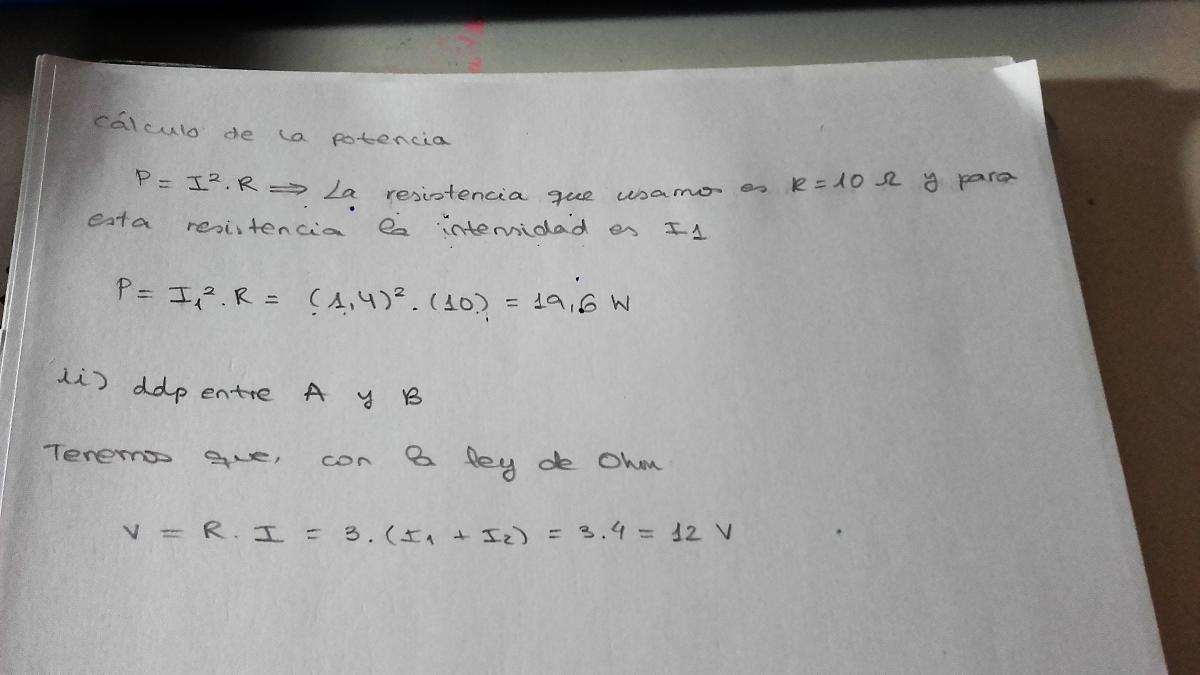 cálculo de la potencia
P = I². R ⟹ La resistencia que usamos es R = 10 Ω y para
esta resistencia la intensidad es I1
P = I₁². R = (1,4)². (10) = 19,6 W
ii) ddp entre A y B
Tenemos que, con la ley de Ohm
V = R. I = 3. (I₁ + I₂) = 3.4 = 12 V